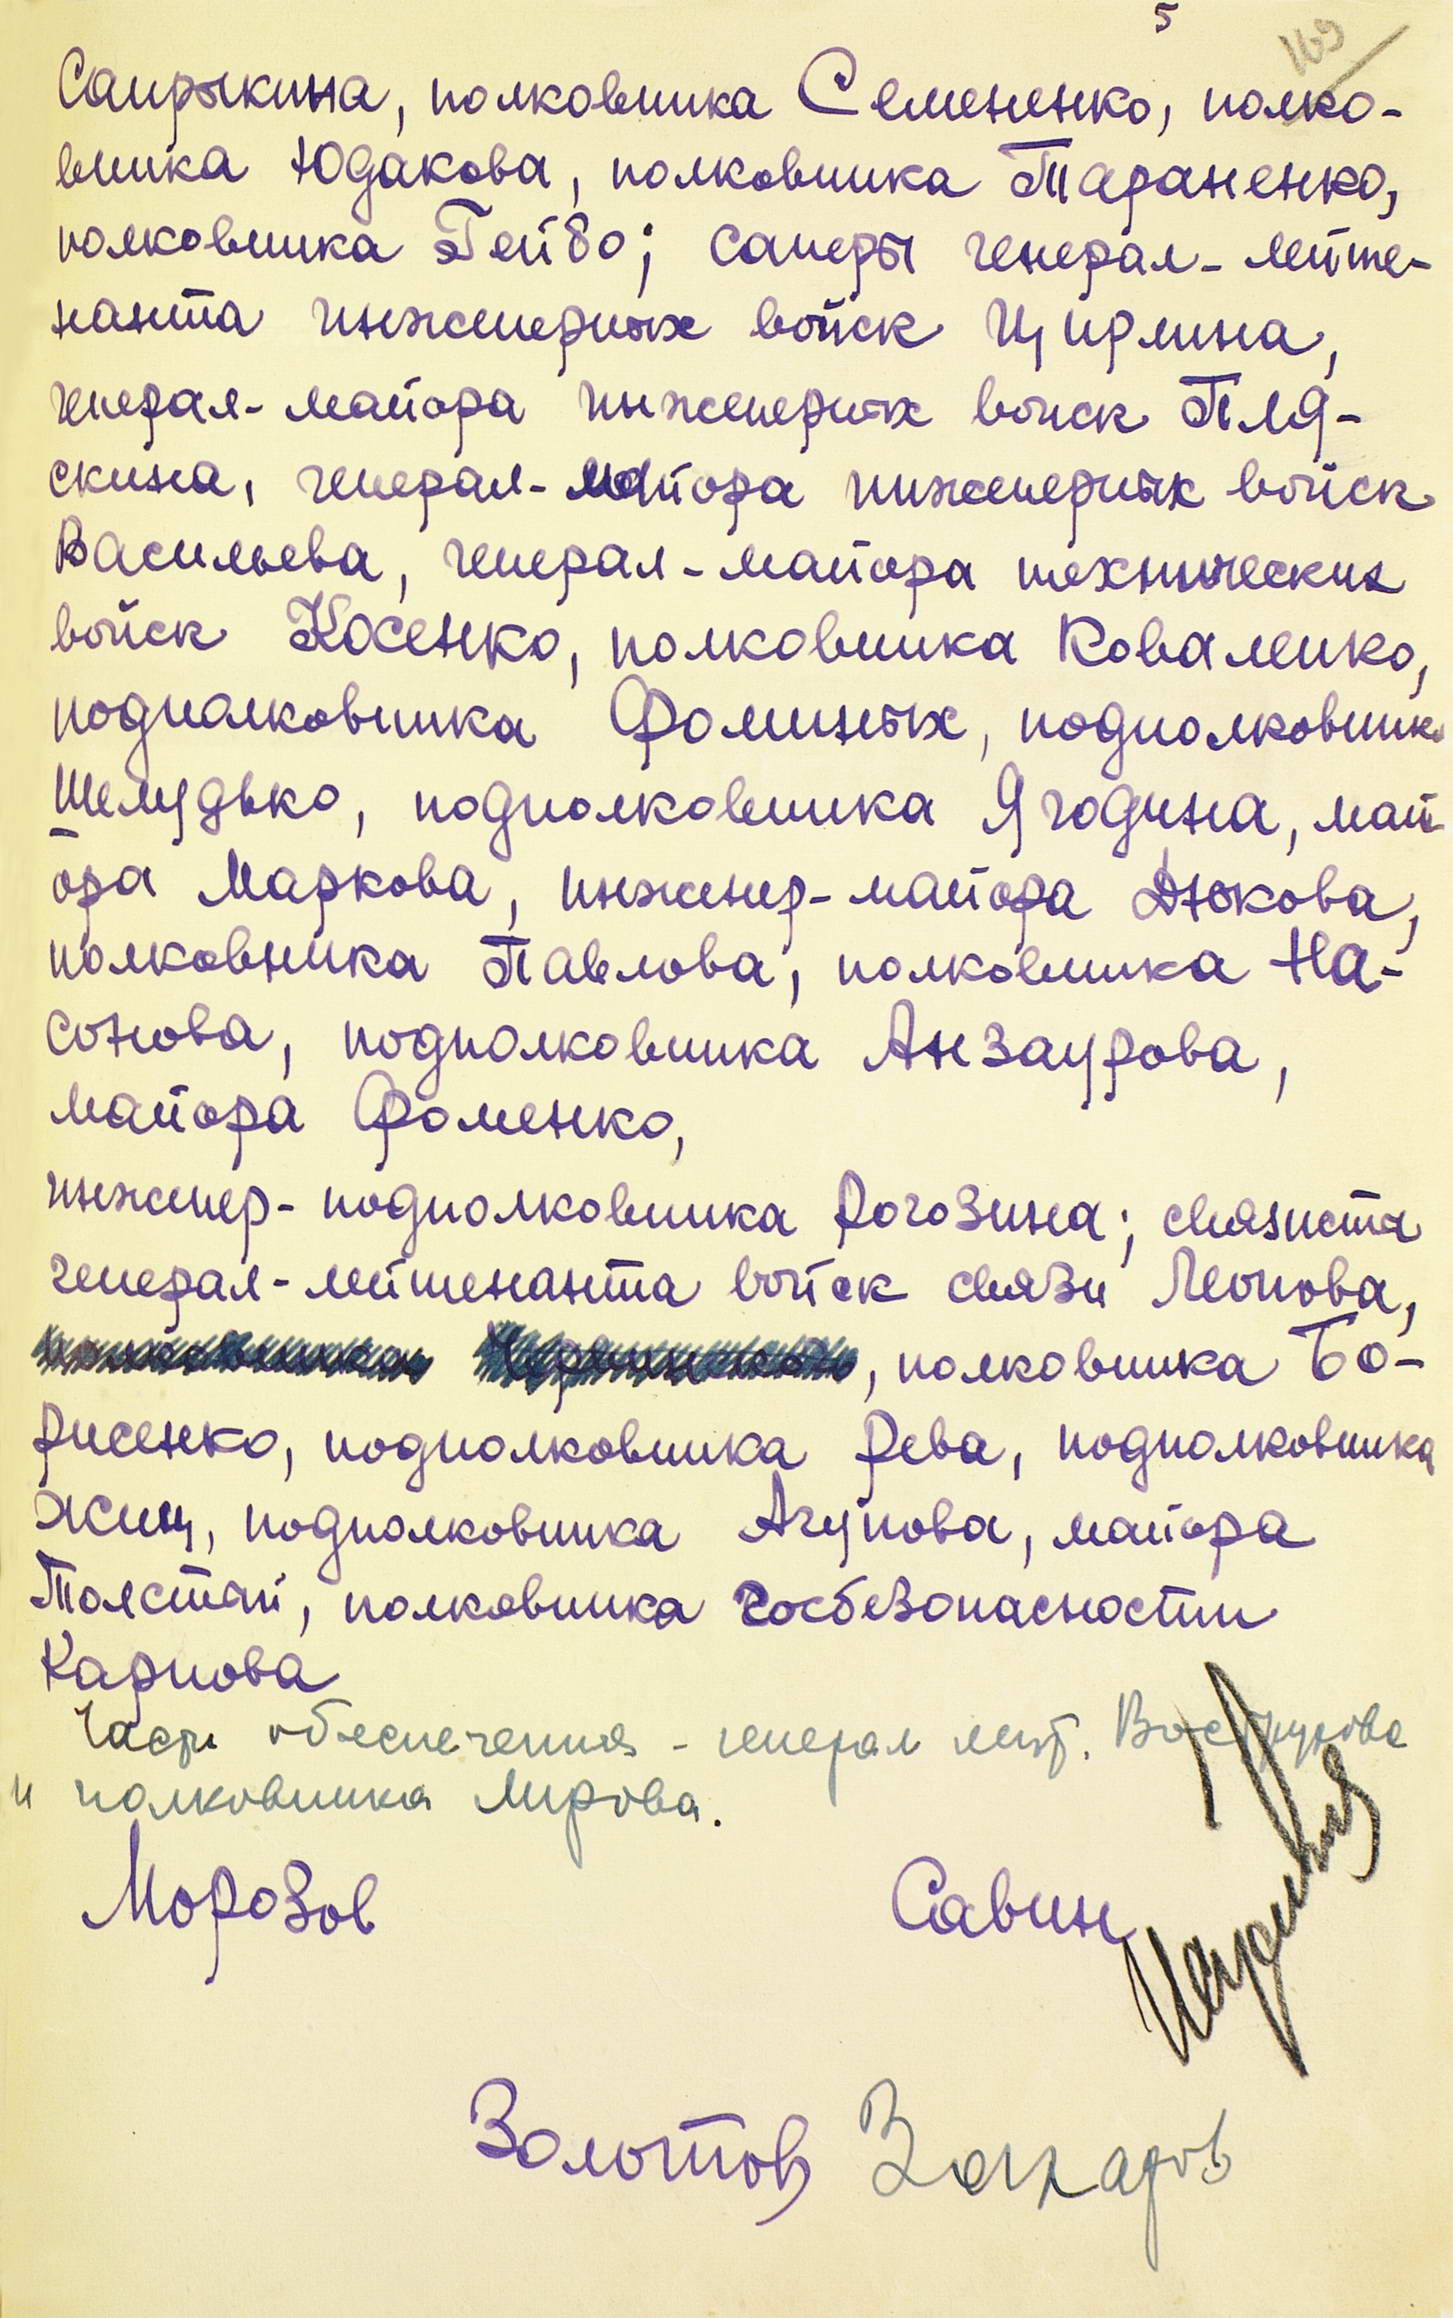 5
169
Саирыкина, полковника Семененко, полко-
вника Юдакова, полковника Тараненко,
полковника Гейбо; саперы генерал-лейте-
нанта инженерных войск Цирлина,
генерал-майора инженерных войск Пля-
скина, генерал-майора инженерных войск
Васильева, генерал-майора технических
войск Косенко, полковника Коваленко,
подполковника Фоминых, подполковника
Шелудько, подполковника Ягодина, май-
ора Маркова, инженер-майора Дюкова,
полковника Павлова, полковника На-
сонова, подполковника Анзаурова,
майора Фоменко,
инженер-подполковника Рогозина; связиста
генерал-лейтенанта войск связи Леонова,
, полковника Бо-
рисенко, подполковника Рева, подполковника
Жищ, подполковника Агупова, майора
Толстой, полковника госбезопасности
Карпова
Части обеспечения - генерал лейт. Вострухова
и полковника Мирова.
Морозов Савин
Золотов Захаров